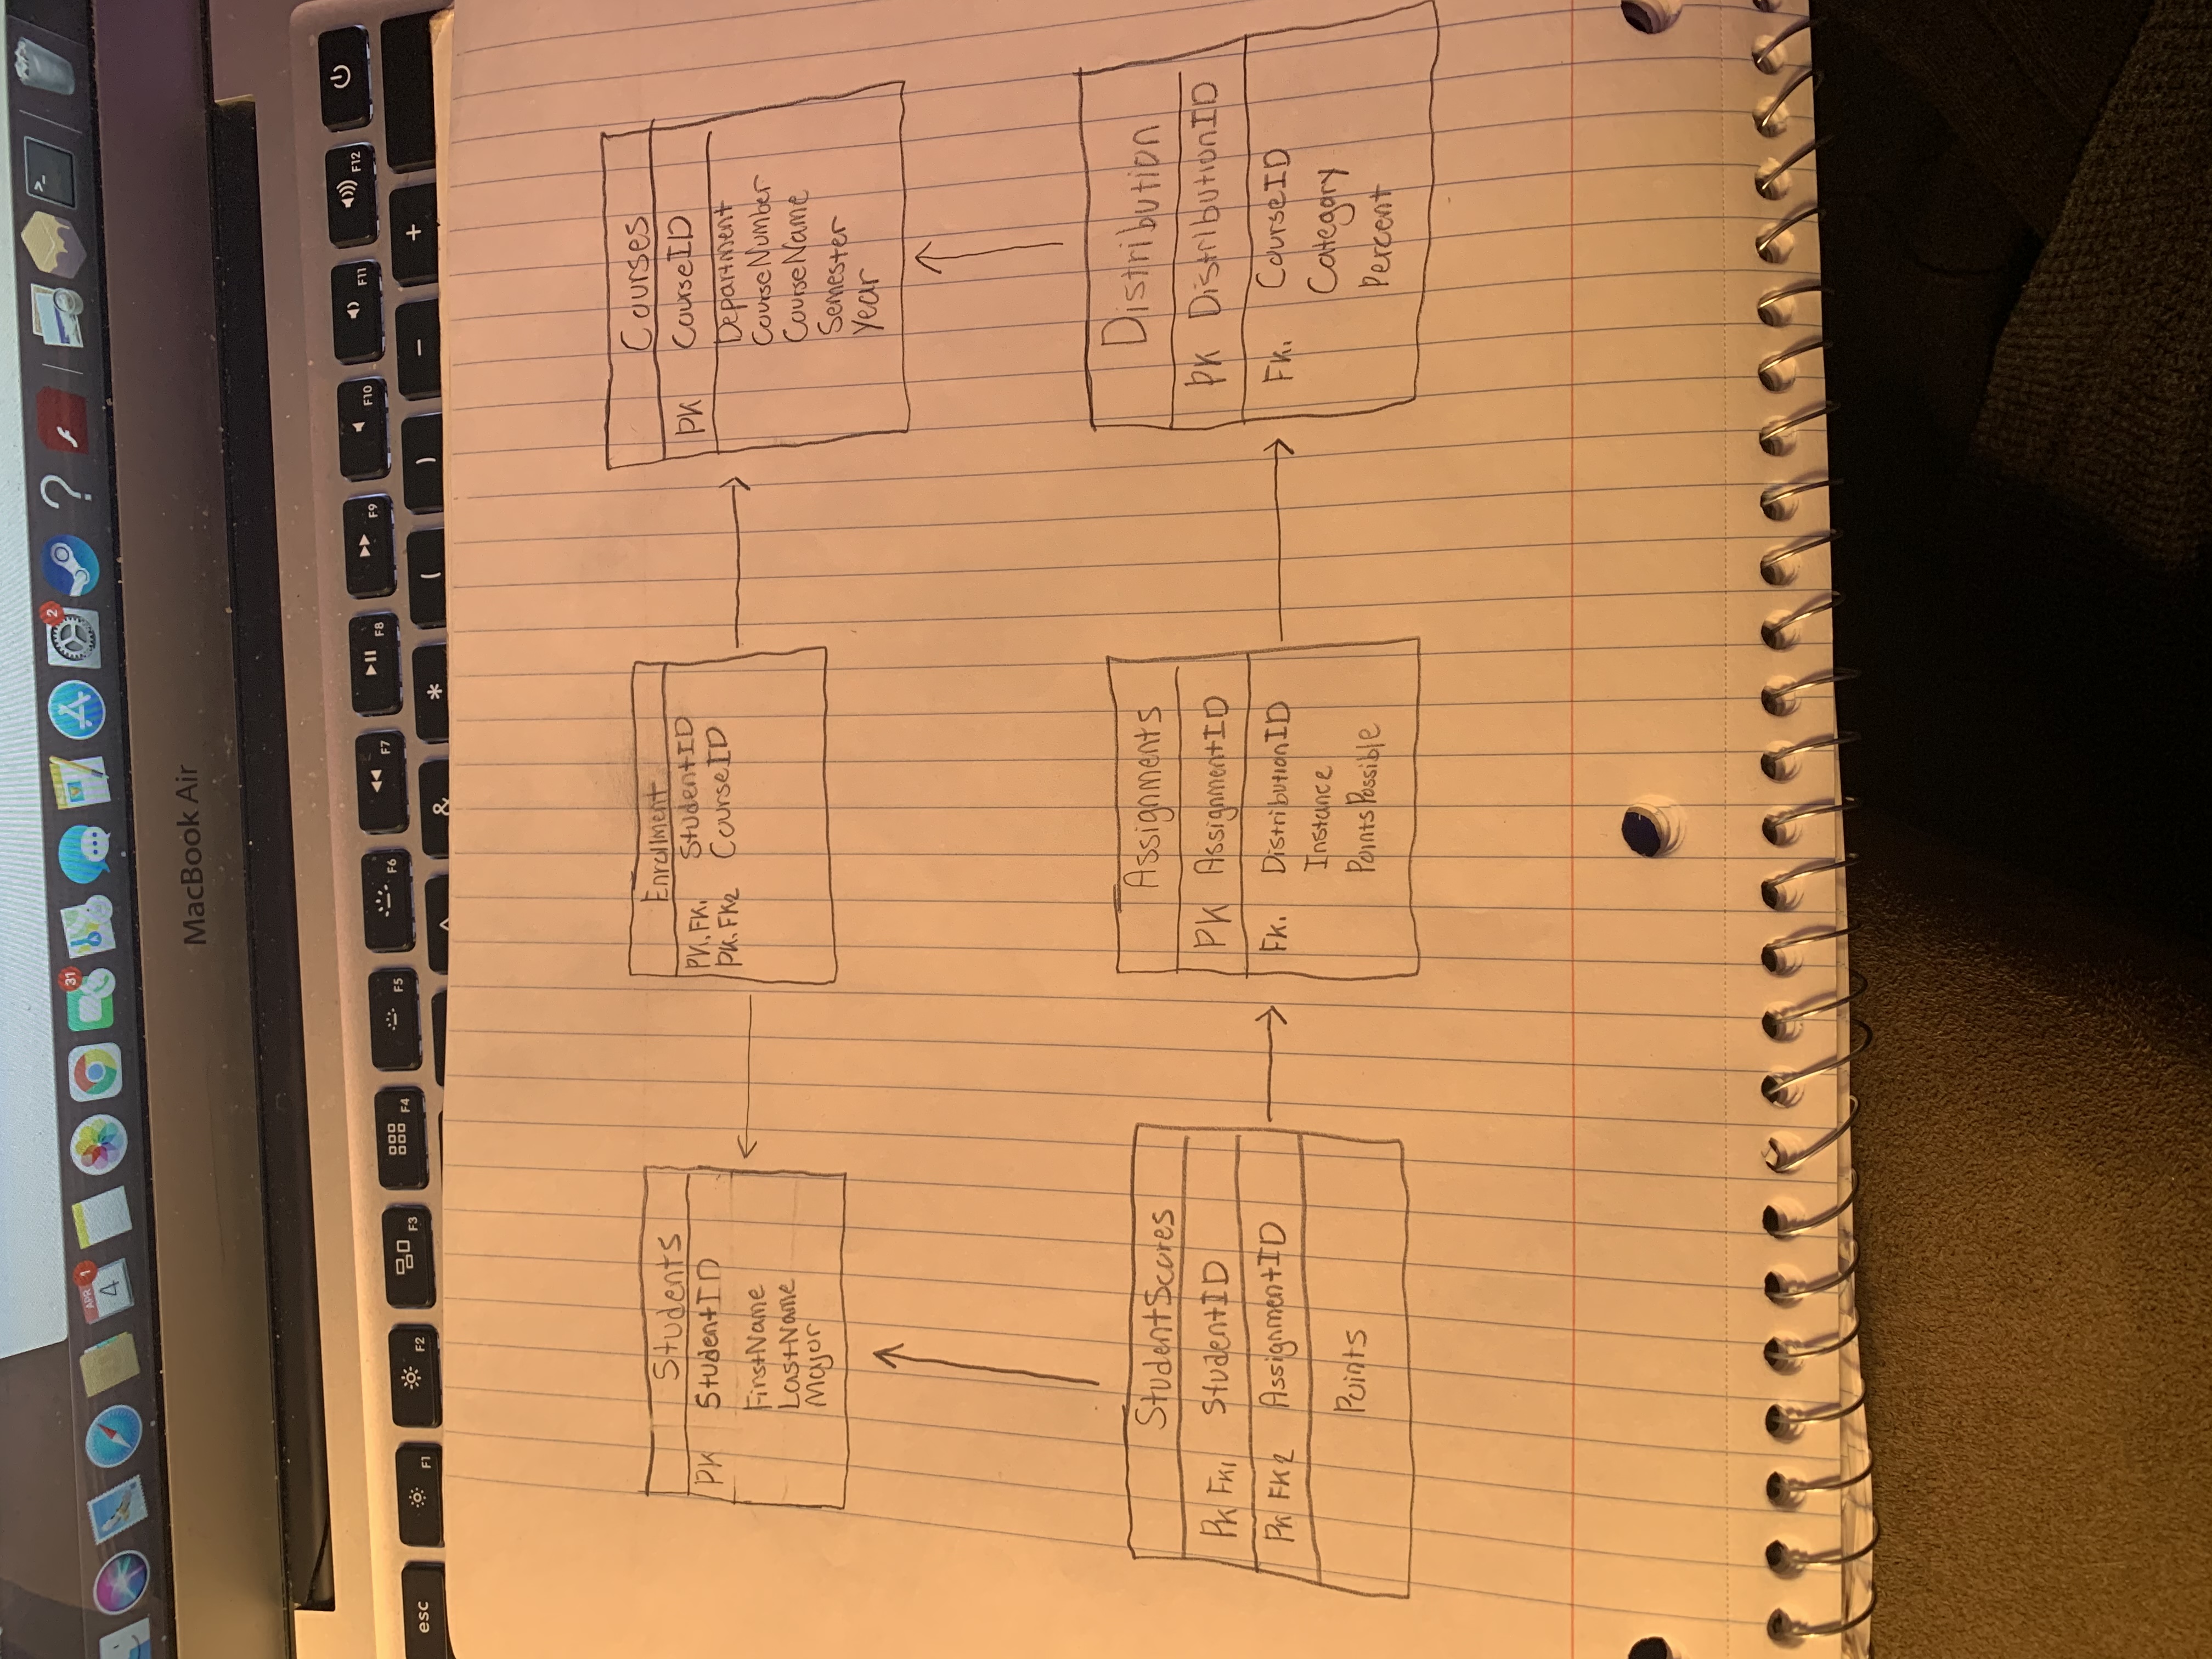 APR 1
4
31
2
?
>_
MacBook Air
esc F1 F2 F3 F4 F5 F6 F7 F8 F9 F10 F11 F12
^ & * ( ) - +
Students
PK StudentID
FirstName
LastName
Major
Enrollment
PK.FK1 StudentID
PK.FK2 CourseID
Courses
PK CourseID
Department
CourseNumber
CourseName
Semester
Year
StudentScores
PK FK1 StudentID
PK FK2 AssignmentID
Points
Assignments
PK AssignmentID
FK. DistributionID
Instance
PointsPossible
Distribution
PK DistributionID
FK. CourseID
Category
Percent